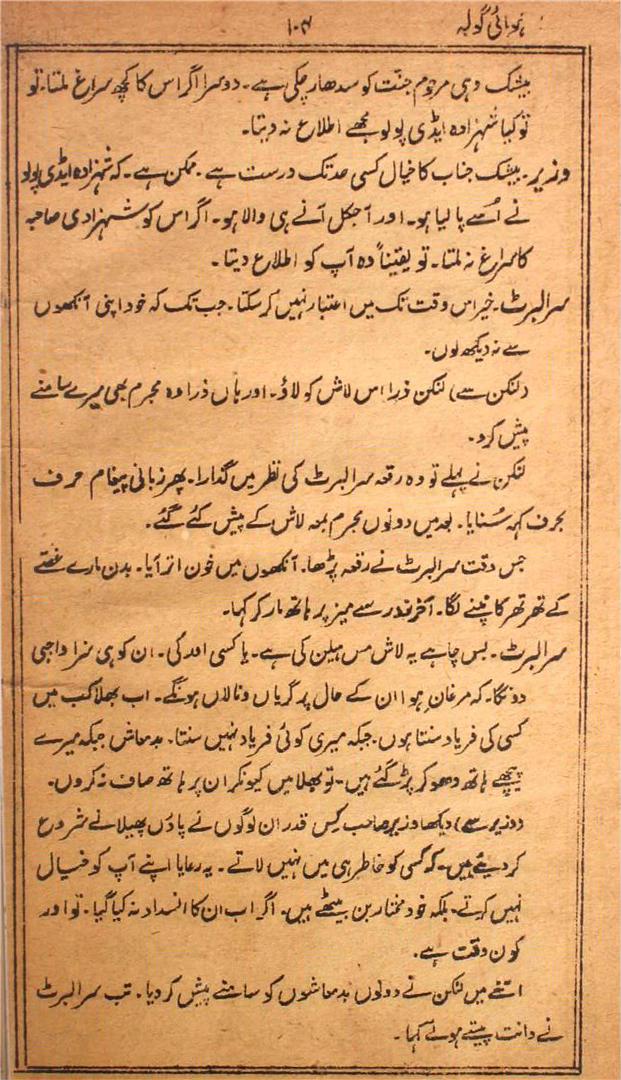 ہوائی گولہ
۱۰۴
بیشک وہی مرحوم جنت کو سدھار چکی ہے۔ دوسرا اگر اس کا کچھ سراغ ملتا۔ تو
تو کیا شہزادہ ایڈی پولو مجھے اطلاع نہ دیتا۔
وزیر۔ بیشک جناب کا خیال کسی حد تک درست ہے۔ ممکن ہے۔ کہ شہزادہ ایڈی پولو
نے اُسے پا لیا ہو۔ اور آجکل آنے ہی والا ہو۔ اگر اس کو شہزادی صاحبہ
کا سراغ نہ ملتا۔ تو یقیناً وہ آپ کو اطلاع دیتا۔
سر البرٹ۔ خیر اس وقت تک میں اعتبار نہیں کر سکتا۔ جب تک کہ خود اپنی آنکھوں
سے نہ دیکھ لوں۔
(لنکن سے) لنکن ذرا اس لاش کو لاؤ۔ اور ہاں ذرا وہ مجرم بھی میرے سامنے
پیش کرو۔
لنکن نے پہلے تو وہ رقعہ سر البرٹ کی نظر میں گذارا۔ پھر زبانی پیغام حرف
بحرف کہہ سُنایا۔ بعد میں دونوں مجرم بمعہ لاش کے پیش کئے گئے۔
جس وقت سر البرٹ نے رقعہ پڑھا۔ آنکھوں میں خون اتر آیا۔ بدن مارے غصے
کے تھر تھر کانپنے لگا۔ آخر زور سے میز پر ہاتھ مار کر کہا۔
سر البرٹ۔ بس چاہے یہ لاش مس ہیلن کی ہے۔ یا کسی اور کی۔ ان کو ہی سزا واجبی
دونگا۔ کہ مرغانِ ہوا ان کے حال پر گریاں و نالاں ہونگے۔ اب بھلا کب میں
کسی کی فریاد سنتا ہوں۔ جبکہ میری کوئی فریاد نہیں سنتا۔ بدمعاش جبکہ میرے
پیچھے ہاتھ دھو کر پڑ گئے ہیں۔ تو بھلا میں کیونکر ان پر ہاتھ صاف نہ کروں۔
(وزیر سے) دیکھا وزیر صاحب کس قدر ان لوگوں نے پاؤں پھیلانے شروع
کر دیئے ہیں۔ کہ کسی کو خاطر ہی میں نہیں لاتے۔ یہ رعایا اپنے آپ کو خیال
نہیں کرتے۔ بلکہ خود مختار بن بیٹھے ہیں۔ اگر اب ان کا انسداد نہ کیا گیا۔ تو اور
کون وقت ہے۔
اتنے میں لنکن نے دونوں بدمعاشوں کو سامنے پیش کر دیا۔ تب سر البرٹ
نے دانت پیستے ہوئے کہا۔